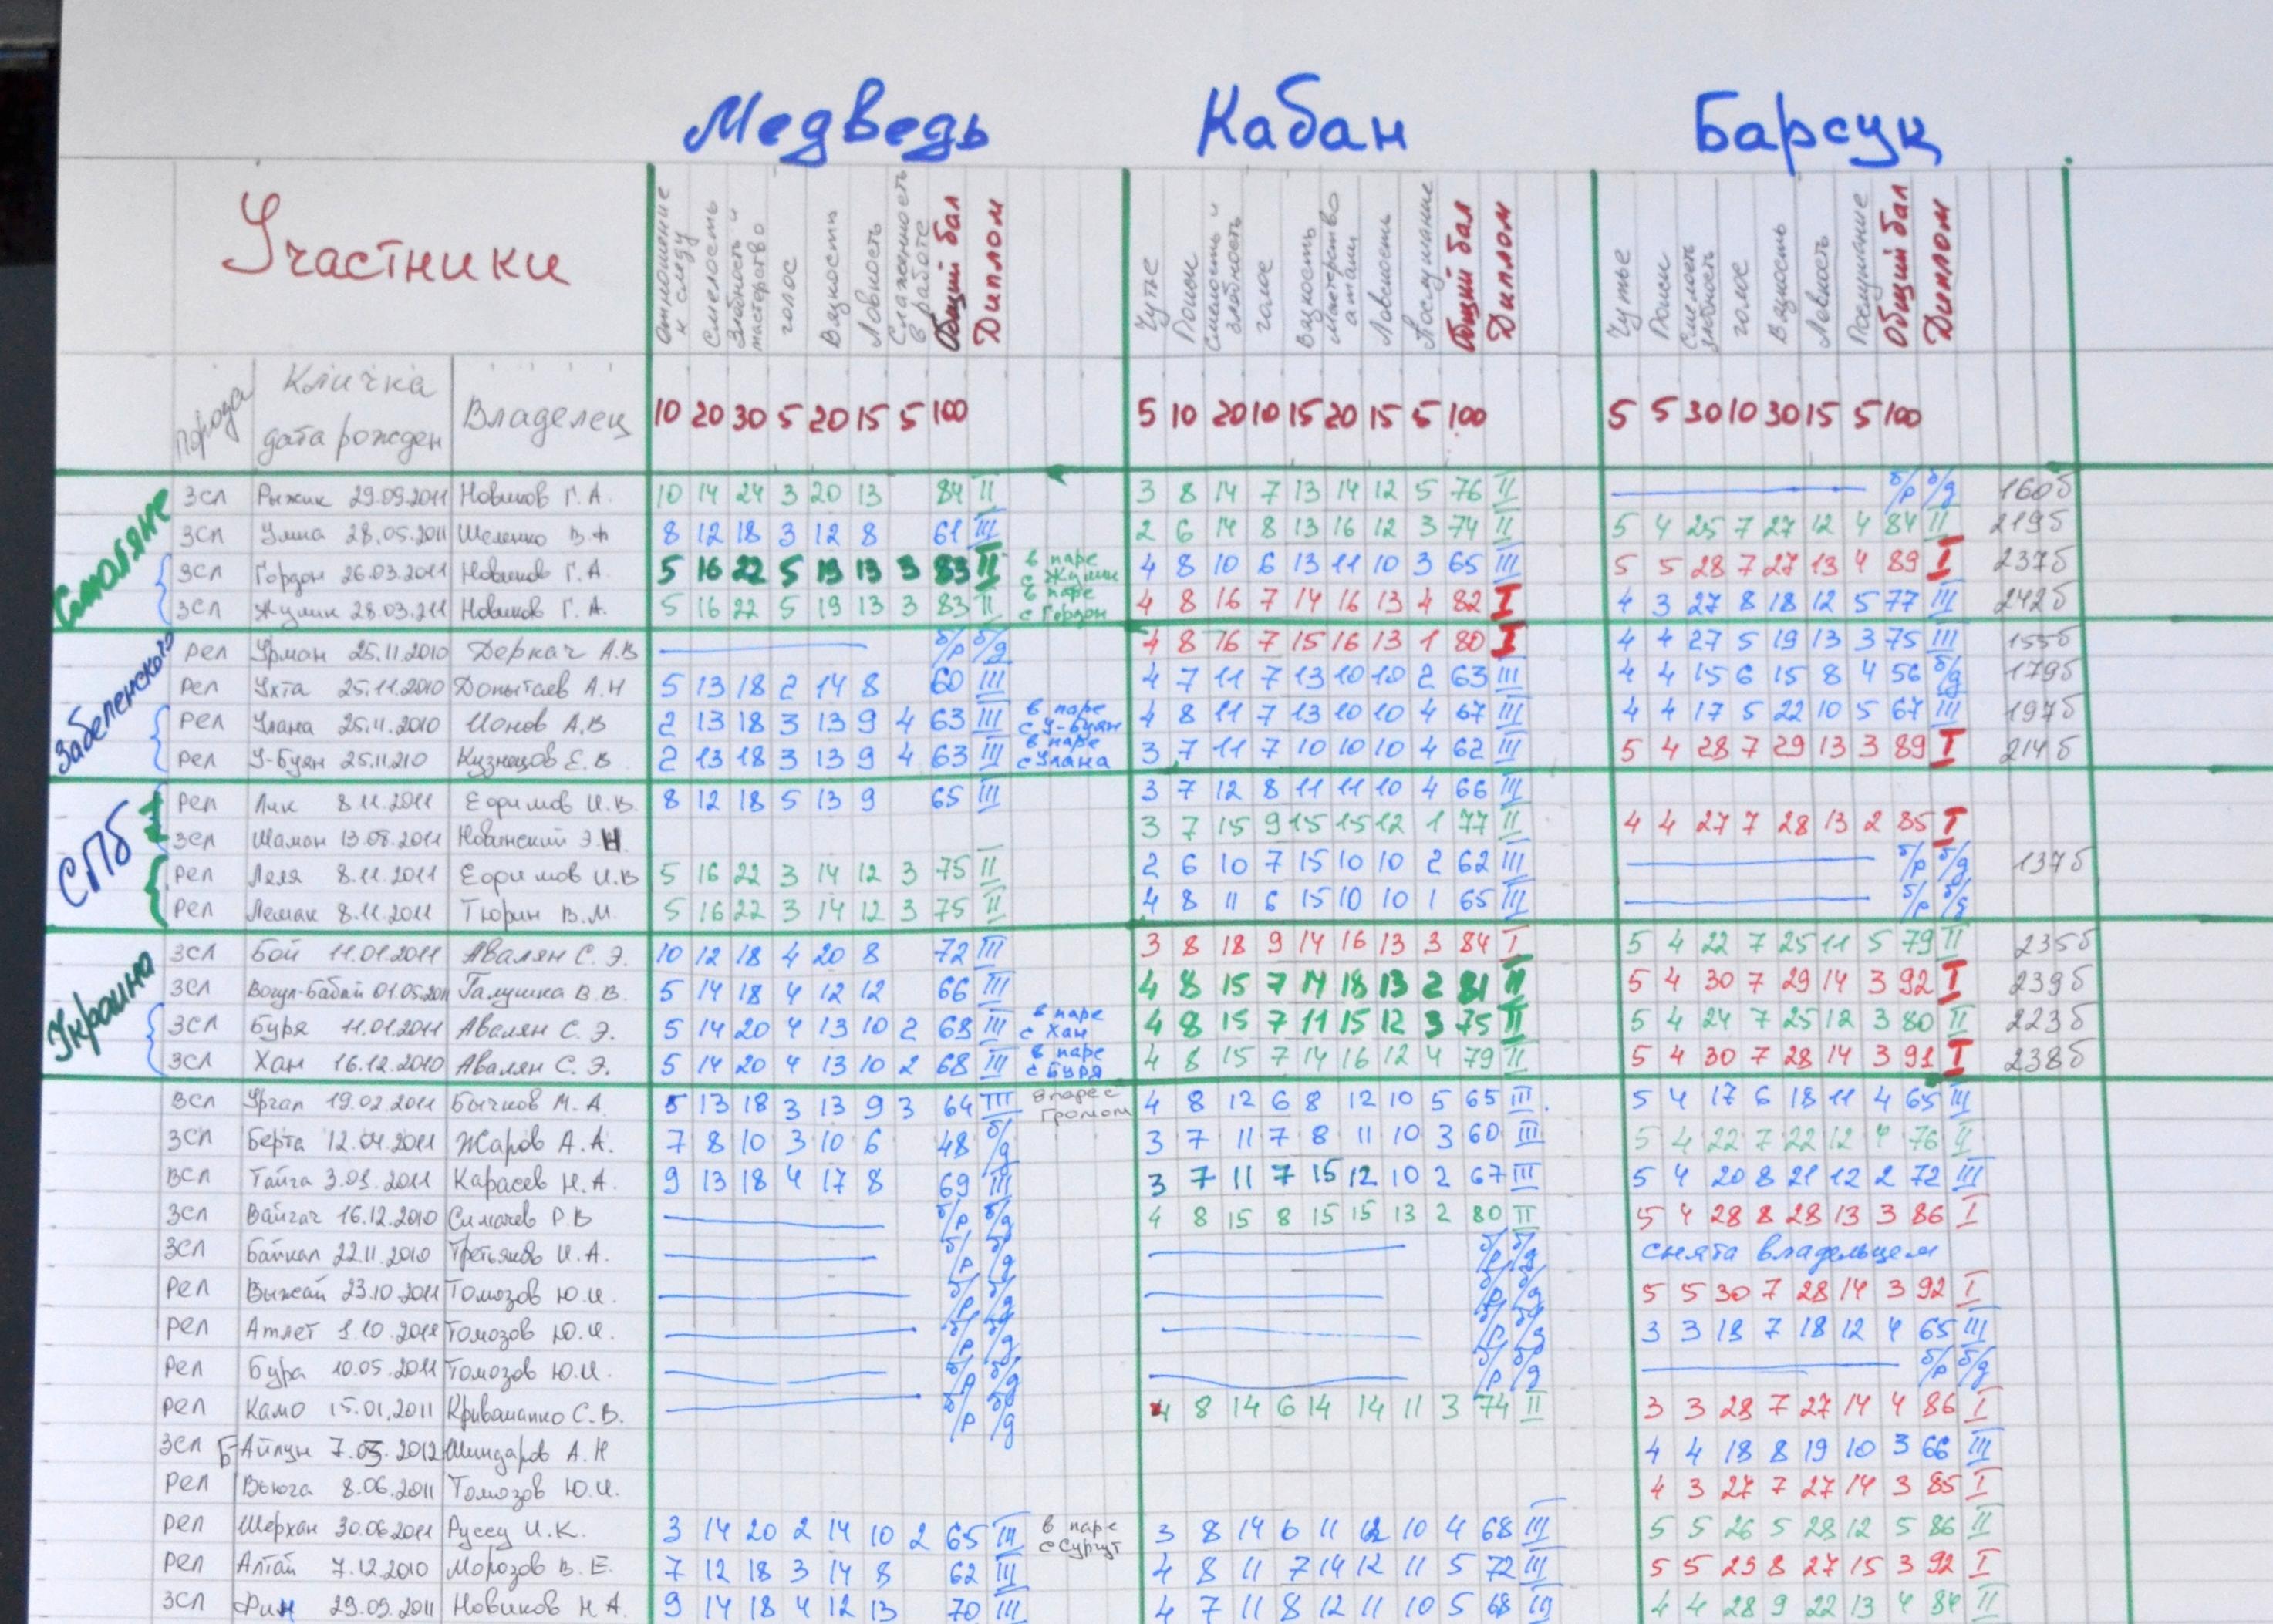 Медведь Кабан Барсук
Участники
Отношение к следу Смелость Злобность и мастерство голос Вязкость Ловкость Слаженность в работе Общий бал Диплом Чутье Поиск Смелость и злобность голос Вязкость Мастерство атаки Ловкость Послушание Общий бал Диплом Чутье Поиск Смелость злобность голос Вязкость Ловкость Послушание Общий бал Диплом
Порода Кличка дата рожден Владелец 10 20 30 5 20 15 5 100 5 10 20 10 15 20 15 5 100 5 5 30 10 30 15 5 100
Смоляне
ЗСЛ Рыжик 29.09.2011 Новиков Г.А. 10 14 24 3 20 13 84 II 3 8 14 7 13 14 12 5 76 II б/р б/д 160б
ЗСЛ Умка 28.05.2011 Шеленко В.Ф 8 12 18 3 12 8 61 III 2 6 14 8 13 16 12 3 74 II 5 4 25 7 27 12 4 84 II 219б
ЗСЛ Гордон 26.03.2011 Новиков Г.А. 5 16 22 5 19 13 3 83 II в паре с Жулик 4 8 10 6 13 11 10 3 65 III 5 5 28 7 27 13 4 89 I 237б
ЗСЛ Жулик 28.03.211 Новиков Г.А. 5 16 22 5 19 13 3 83 II в паре с Гордон 4 8 16 7 14 16 13 4 82 I 4 3 27 8 18 12 5 77 III 242б
Забеленского
РЕЛ Урман 25.11.2010 Деркач А.В б/р б/д 4 8 16 7 15 16 13 1 80 I 4 4 27 5 19 13 3 75 III 155б
РЕЛ Ухта 25.11.2010 Допытаев А.Н 5 13 18 2 14 8 60 III 4 7 11 7 13 10 10 2 63 III 4 4 15 6 15 8 4 56 б/д 179б
РЕЛ Улана 25.11.2010 Ионов А.В 2 13 18 3 13 9 4 63 III в паре с У-Буян 4 8 11 7 13 10 10 4 67 III 4 4 17 5 22 10 5 67 III 197б
РЕЛ У-Буян 25.11.210 Кузнецов Е.В 2 13 18 3 13 9 4 63 III в паре с Улана 3 7 11 7 10 10 10 4 62 III 5 4 28 7 29 13 3 89 I 214б
СПб
РЕЛ Лик 8.11.2011 Ефимов И.В. 8 12 18 5 13 9 65 III 3 7 12 8 11 11 10 4 66 III
ЗСЛ Шаман 13.08.2011 Новинский Э.Н. 3 7 15 9 15 15 12 1 77 II 4 4 27 7 28 13 2 85 I
РЕЛ Леля 8.11.2011 Ефимов И.В 5 16 22 3 14 12 3 75 II 2 6 10 7 15 10 10 2 62 III б/р б/д 137б
РЕЛ Лешак 8.11.2011 Тюрин В.М. 5 16 22 3 14 12 3 75 II 4 8 11 6 15 10 10 1 65 III б/р б/д
Украина
ЗСЛ Бой 11.01.2011 Авалян С.Э. 10 12 18 4 20 8 72 III 3 8 18 9 14 16 13 3 84 I 5 4 22 7 25 11 5 79 II 235б
ЗСЛ Вогул-Бабай 01.05.2011 Галушка В.В. 5 14 18 4 12 12 66 III 4 8 15 7 14 18 13 2 81 II 5 4 30 7 29 14 3 92 I 239б
ЗСЛ Буря 11.01.2011 Авалян С.Э. 5 14 20 4 13 10 2 68 III в паре с Хан 4 8 15 7 11 15 12 3 75 II 5 4 24 7 25 12 3 80 II 223б
ЗСЛ Хан 16.12.2010 Авалян С.Э. 5 14 20 4 13 10 2 68 III в паре с Буря 4 8 15 7 14 16 12 4 79 II 5 4 30 7 28 14 3 91 I 238б
ВСЛ Ургал 19.02.2011 Бычков М.А. 5 13 18 3 13 9 3 64 III в паре с Громом 4 8 12 6 8 12 10 5 65 III. 5 4 17 6 18 11 4 65 III
ЗСЛ Берта 12.04.2011 Жаров А.А. 7 8 10 3 10 6 48 б/д 3 7 11 7 8 11 10 3 60 III 5 4 22 7 22 12 4 76 II
ВСЛ Тайга 3.03.2011 Карасев Н.А. 9 13 18 4 17 8 69 III 3 7 11 7 15 12 10 2 67 III 5 4 20 8 21 12 2 72 III
ЗСЛ Вайгач 16.12.2010 Симачев Р.В б/р б/д 4 8 15 8 15 15 13 2 80 II 5 4 28 8 28 13 3 86 I
ЗСЛ Байкал 22.11.2010 Третьяков И.А. б/р б/д б/р б/д снята владельцем
РЕЛ Выжай 23.10.2011 Томозов Ю.И. б/р б/д б/р б/д 5 5 30 7 28 14 3 92 I
РЕЛ Атлет 1.10.2011 Томозов Ю.И. б/р б/д б/р б/д 3 3 18 7 18 12 4 65 III
РЕЛ Бура 10.05.2011 Томозов Ю.И. б/р б/д б/р б/д б/р б/д
РЕЛ Камо 15.01.2011 Кривошапко С.В. б/р б/д 4 8 14 6 14 14 11 3 74 II 3 3 28 7 27 14 4 86 I
ЗСЛ Б-Айлун 7.03.2012 Шиндаров А.Н 4 4 18 8 19 10 3 66 III
РЕЛ Вьюга 8.06.2011 Томозов Ю.И. 4 3 27 7 27 14 3 85 I
РЕЛ Шерхан 30.06.2011 Руссу И.К. 3 14 20 2 14 10 2 65 III в паре с Сургут 3 8 14 6 11 12 10 4 68 III 5 5 26 5 28 12 5 86 II
РЕЛ Алтай 7.12.2010 Морозов В.Е. 7 12 18 3 14 8 62 III 4 8 11 7 14 12 11 5 72 III 5 5 29 8 27 15 3 92 I
ЗСЛ Фин 29.09.2011 Новиков Н.А. 9 14 18 4 12 13 70 III 4 7 11 8 12 11 10 5 68 III 4 4 28 9 22 13 4 84 II